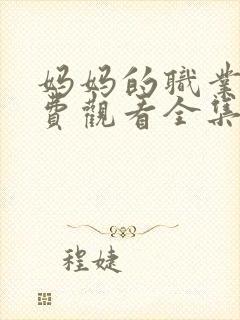 妈妈的職業
費觀看全集
程婕